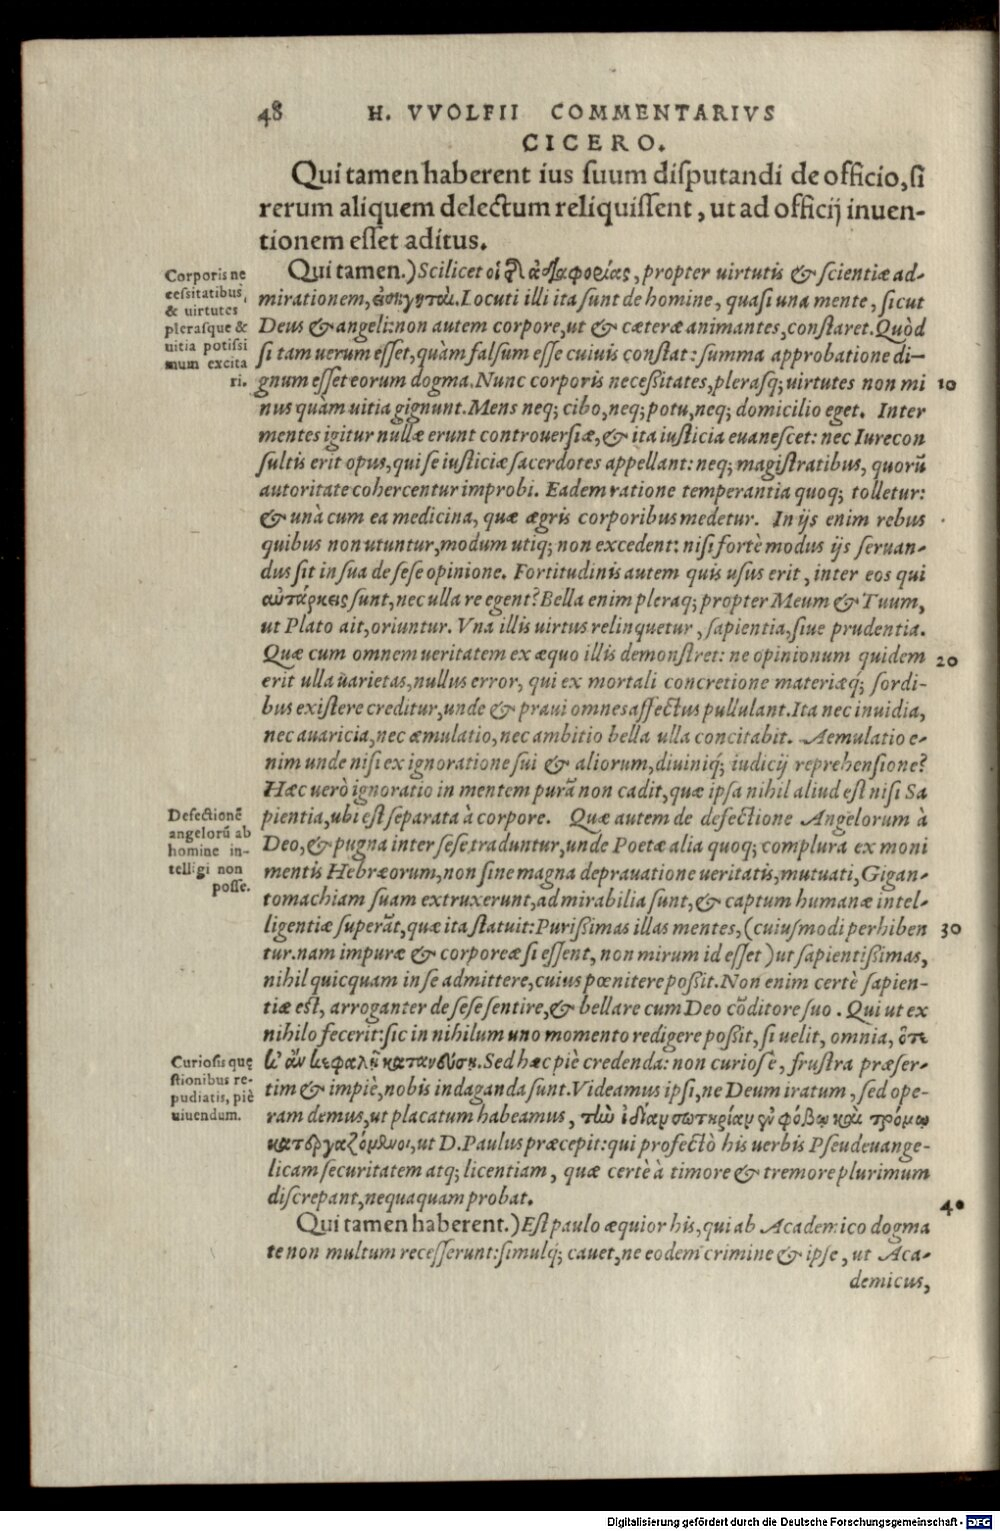 48 H. VVOLFII COMMENTARIVS
CICERO.
Qui tamen haberent ius suum disputandi de officio, si
rerum aliquem delectum reliquissent, ut ad officij inuen-
tionem esset aditus.
Corporis ne
cessitatibus,
& uirtutes
plerasque &
uitia potissi
mum excita
ri.
Qui tamen.) Scilicet οἱ ἀδιαφορίας, propter uirtutis & scientiæ ad-
mirationem, Locuti illi ita sunt de homine, quasi una mente, sicut
Deus & angeli: non autem corpore, ut & cæteræ animantes, constaret. Quòd
si tam uerum esset, quàm falsum esse cuiuis constat: summa approbatione di-
gnum esset eorum dogma. Nunc corporis necessitates, plerasq; uirtutes non mi 10
nus quàm uitia gignunt. Mens neq; cibo, neq; potu, neq; domicilio eget. Inter
mentes igitur nullæ erunt controuersiæ, & ita iusticia euanescet: nec Iurecon
sultis erit opus, qui se iusticiæ sacerdotes appellant: neq; magistratibus, quorũ
autoritate cohercentur improbi. Eadem ratione temperantia quoq; tolletur:
& unà cum ea medicina, quæ ægris corporibus medetur. In ijs enim rebus
quibus non utuntur, modum utiq; non excedent: nisi fortè modus ijs seruan-
dus sit in sua de sese opinione. Fortitudinis autem quis usus erit, inter eos qui
αὐτάρκεις sunt, nec ulla re egent? Bella enim pleraq; propter Meum & Tuum,
ut Plato ait, oriuntur. Vna illis uirtus relinquetur, sapientia, siue prudentia.
Quæ cum omnem ueritatem ex æquo illis demonstret: ne opinionum quidem 20
erit ulla uarietas, nullus error, qui ex mortali concretione materiæq́; sordi-
bus existere creditur, unde & praui omnes affectus pullulant. Ita nec inuidia,
nec auaricia, nec æmulatio, nec ambitio bella ulla concitabit. Aemulatio e-
nim unde nisi ex ignoratione sui & aliorum, diuiniq́; iudicij reprehensione?
Hæc uerò ignoratio in mentem purã non cadit, quæ ipsa nihil aliud est nisi Sa
Defectionẽ
angelorũ ab
homine in-
telligi non
posse.
pientia, ubi est separata à corpore. Quæ autem de defectione Angelorum à
Deo, & pugna inter sese traduntur, unde Poetæ alia quoq; complura ex moni
mentis Hebræorum, non sine magna deprauatione ueritatis, mutuati, Gigan-
tomachiam suam extruxerunt, admirabilia sunt, & captum humanæ intel-
ligentiæ superãt, quæ ita statuit: Purissimas illas mentes, (cuiusmodi perhiben 30
tur. nam impuræ & corporeæ si essent, non mirum id esset) ut sapientissimas,
nihil quicquam in se admittere, cuius pœnitere possit. Non enim certè sapien-
tiæ est, arroganter de sese sentire, & bellare cum Deo cõditore suo. Qui ut ex
nihilo fecerit: sic in nihilum uno momento redigere possit, si uelit, omnia, ὅτε
Curiosis quę
stionibus re-
pudiatis, piè
uiuendum.
κ' ἂν κεφαλῇ κατανεύσῃ. Sed hæc piè credenda: non curiosè, frustra præser-
tim & impiè, nobis indaganda sunt. Videamus ipsi, ne Deum iratum, sed ope-
ram demus, ut placatum habeamus, τὴν ἰδίαν σωτηρίαν ἐν φόβῳ καὶ τρόμῳ
κατεργαζόμενοι, ut D. Paulus præcepit: qui profectò his uerbis Pseudeuange-
licam securitatem atq; licentiam, quæ certè à timore & tremore plurimum
discrepant, nequaquam probat.
40
Qui tamen haberent.) Est paulo æquior his, qui ab Academico dogma
te non multum recesserunt: simulq́; cauet, ne eodem crimine & ipse, ut Aca-
demicus,
Digitalisierung gefördert durch die Deutsche Forschungsgemeinschaft - DFG